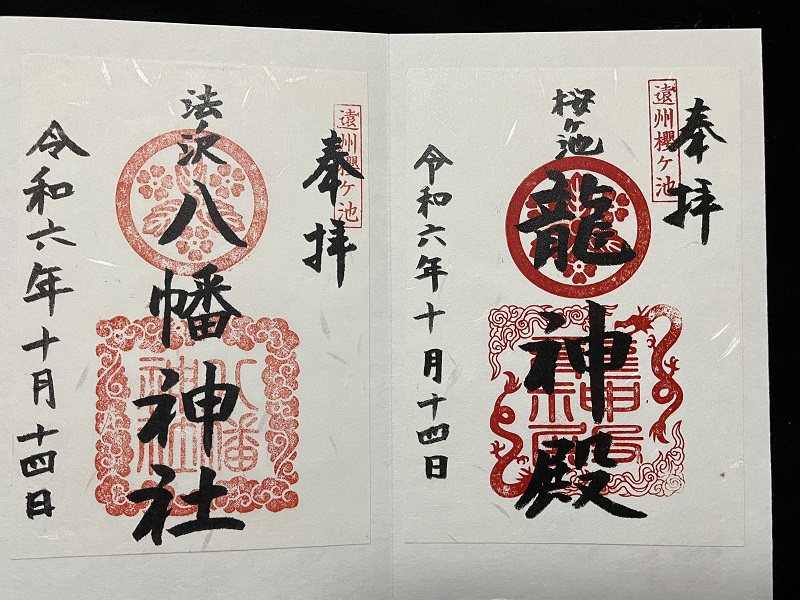 奉拝
遠州櫻ヶ池
桜ヶ池
龍神殿
令和六年十月十四日
遠州櫻ヶ池
奉拝
八幡神社
八幡
神社
令和六年十月十四日